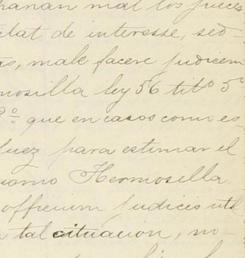 hanan mal los jueces
idat de interesse, sed
as, male facere judicem
mosilla ley 56 titº 5º
9º que en casos como es
Juez para estimar el
uamo Hermosilla.
offrerum judices ut
a tal cituación, no